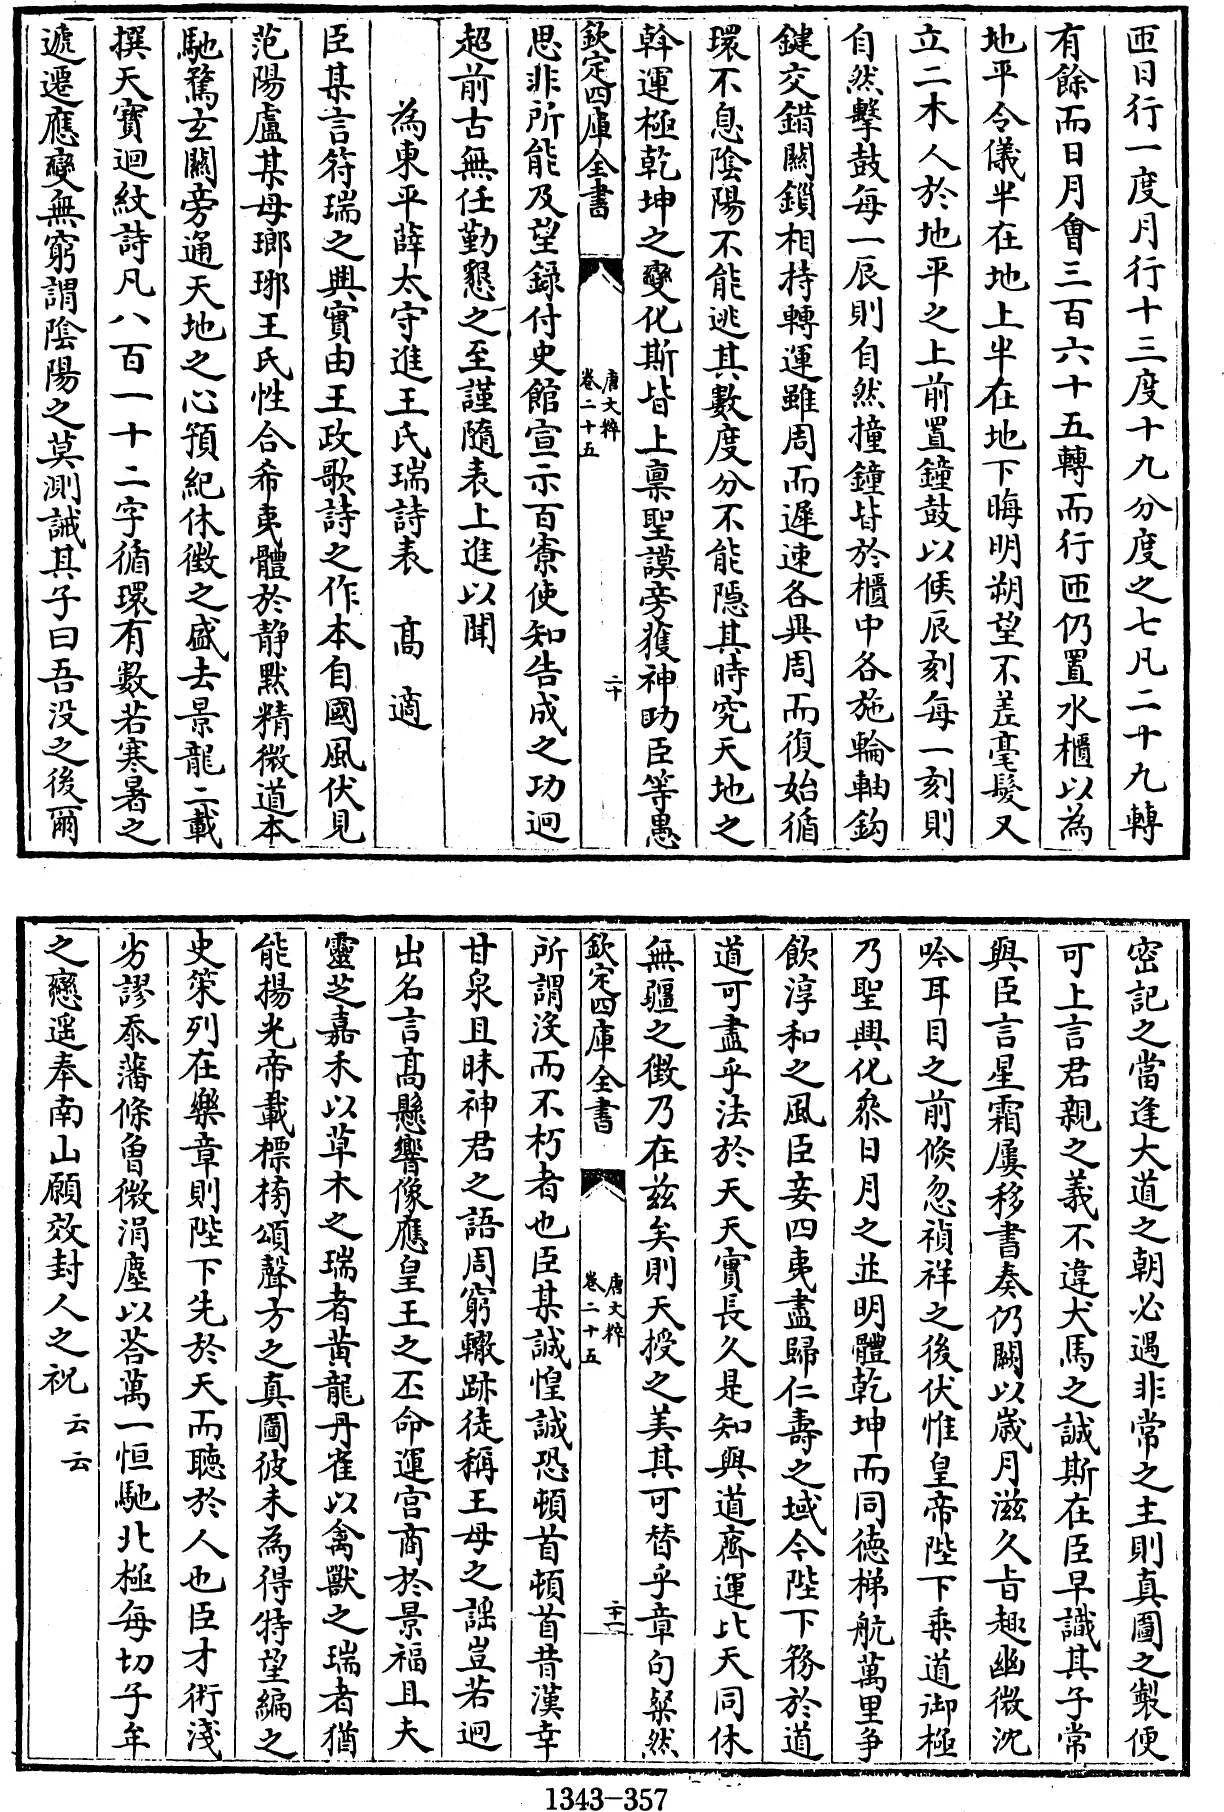 匝日行一度月行十三度十九分度之七凡二十九轉
有餘而日月會三百六十五轉而行匝仍置水櫃以為
地平令儀半在地上半在地下晦明朔望不差毫髮又
立二木人於地平之上前置鐘鼓以候辰刻每一刻則
自然擊鼓每一辰則自然撞鐘皆於櫃中各施輪軸鈎
鍵交錯關鎖相持轉運雖周而遲速各異周而復始循
環不息陰陽不能逃其數度分不能隱其時究天地之
斡運極乾坤之變化斯皆上稟聖謨旁獲神助臣等愚
欽定四庫全書
唐文粹
卷二十五
二十
思非所能及望錄付史館宣示百寮使知告成之功迥
超前古無任勤懇之至謹隨表上進以聞
為東平薛太守進王氏瑞詩表 高適
臣某言符瑞之興實由王政歌詩之作本自國風伏見
范陽盧某母瑯琊王氏性合希夷體於静默精微道本
馳騖玄關旁通天地之心預紀休徴之盛去景龍二載
撰天寳迴紋詩凡八百一十二字循環有數若寒暑之
遞遷應變無窮謂陰陽之莫測誡其子曰吾没之後爾
密記之當逢大道之朝必遇非常之主則真圖之製便
可上言君親之義不違犬馬之誠斯在臣早識其子常
與臣言星霜屢移書奏仍闕以嵗月滋久旨趣幽微沈
吟耳目之前倏忽禎祥之後伏惟皇帝陛下乗道御極
乃聖興化叅日月之並明體乾坤而同德梯航萬里爭
飲淳和之風臣妾四夷盡歸仁壽之域今陛下務於道
道可盡乎法於天天實長久是知與道齊運比天同休
無疆之徴乃在兹矣則天授之美其可替乎章句粲然
欽定四庫全書
唐文粹
卷二十五
二十一
所謂沒而不朽者也臣某誠惶誠恐頓首頓首昔漢幸
甘泉且昧神君之語周窮轍跡徒稱王母之謡豈若迥
出名言高懸響像應皇王之丕命運宫商於景福且夫
靈芝嘉禾以草木之瑞者黄龍丹雀以禽獸之瑞者猶
能揚光帝載標榜頌聲方之真圖彼未為得特望編之
史策列在樂章則陛下先於天而聽於人也臣才術淺
劣謬忝藩條曾微涓塵以荅萬一恒馳北極每切子牟
之戀遥奉南山願效封人之祝云云
1343-357